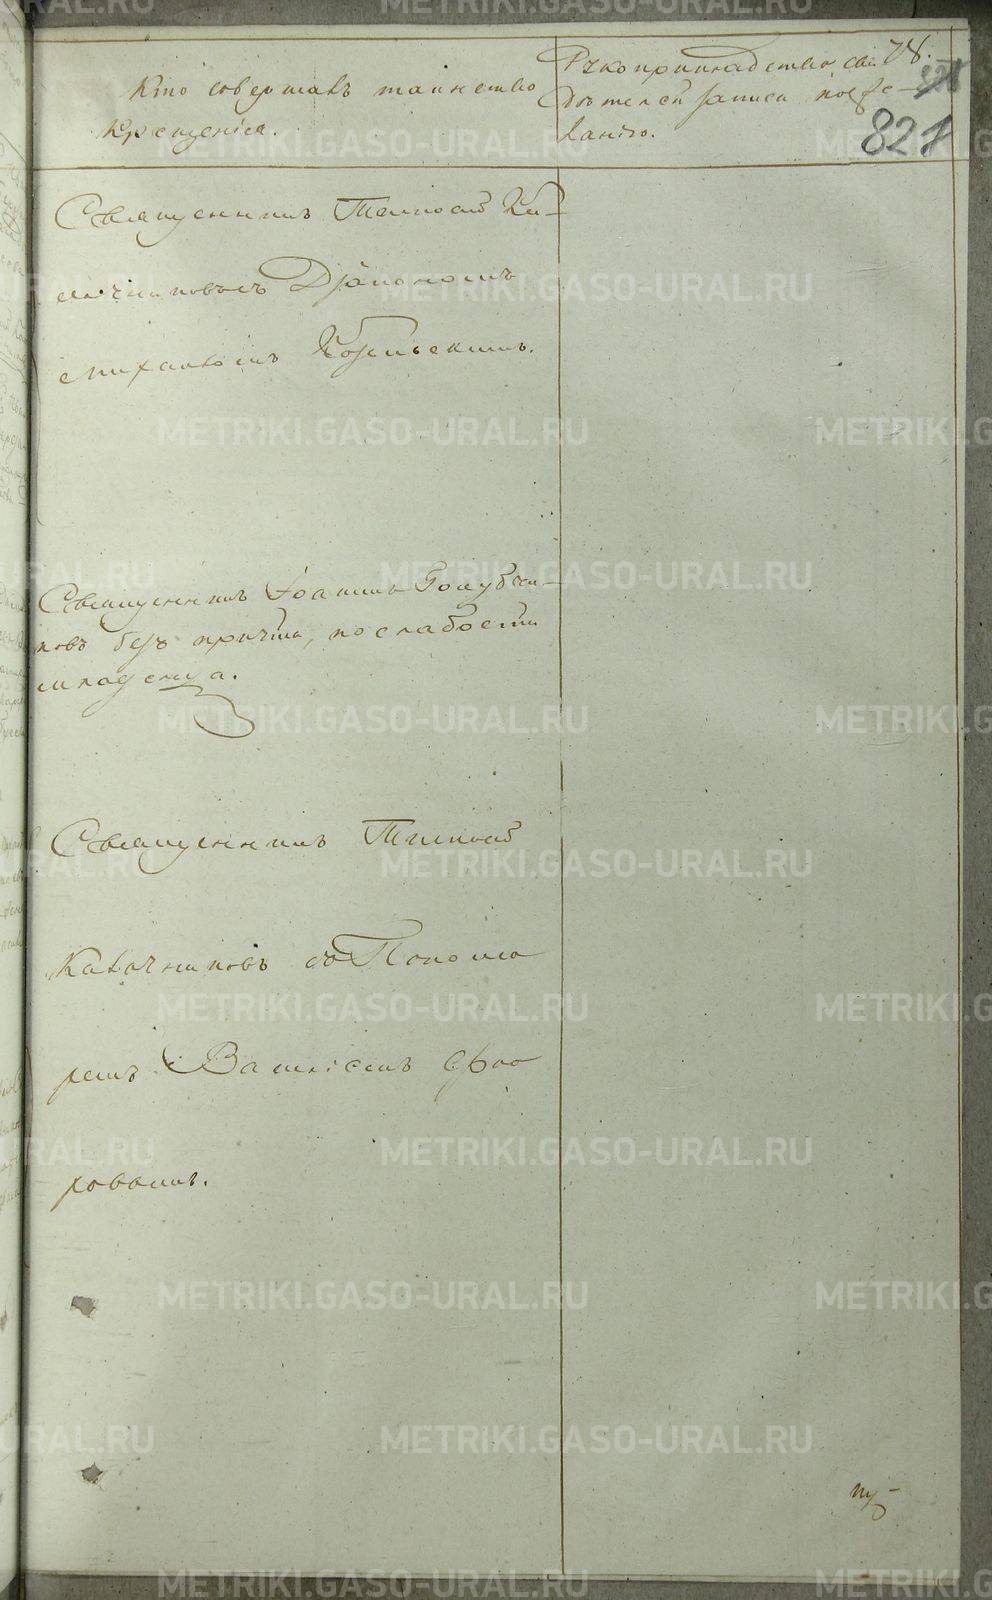 Кто совершалъ таинство
крещенія.
Рукоприкладство сви-
дѣтелей записи по же-
ланію.
78.
821
Священникъ Тимоѳей Ка-
лачниковъ съ Діакономъ
Михаиломъ
Священникъ Іоаннъ Голубчи-
ковъ безъ причта, по слабости
младенца.
Священникъ Тимоѳей
Калачниковъ съ Понома
ремъ Василіемъ Фло
ровымъ.